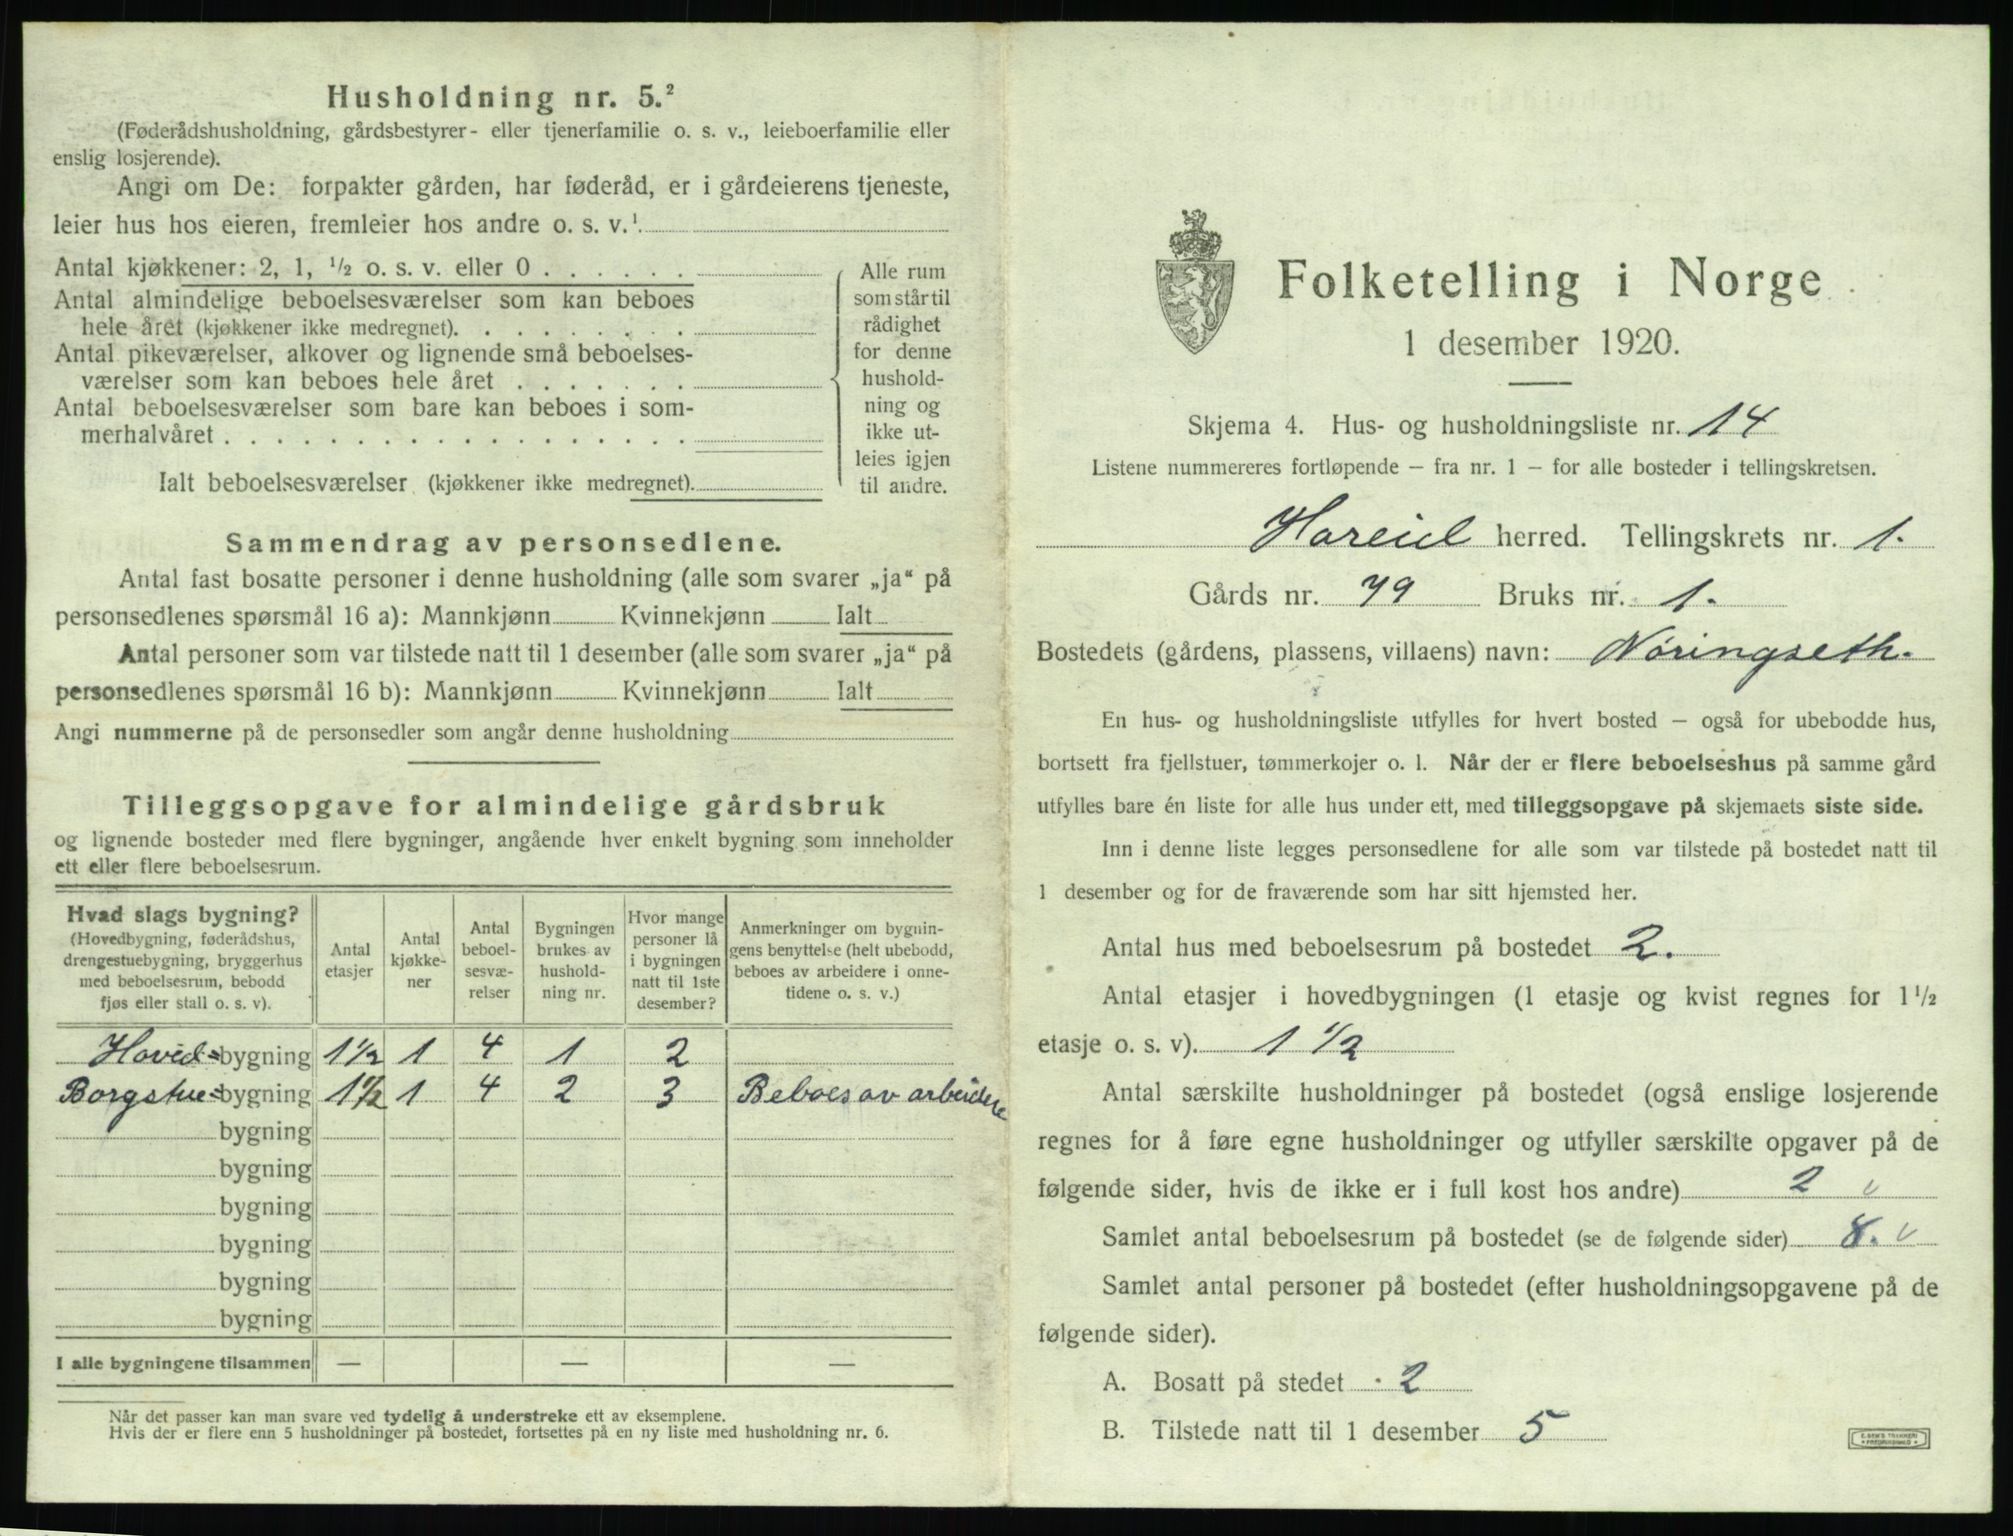 Husholdning nr. 5.²
(Føderådshusholdning, gårdsbestyrer- eller tjenerfamilie o. s. v., leieboerfamilie eller
enslig losjerende).
Angi om De: forpakter gården, har føderåd, er i gårdeierens tjeneste,
leier hus hos eieren, fremleier hos andre o. s. v.¹
Antal kjøkkener: 2, 1, ½ o. s. v. eller 0
Antal almindelige beboelsesværelser som kan beboes
hele året (kjøkkener ikke medregnet).
Antal pikeværelser, alkover og lignende små beboelses-
værelser som kan beboes hele året
Antal beboelsesværelser som bare kan beboes i som-
merhalvåret
Ialt beboelsesværelser (kjøkkener ikke medregnet).
Alle rum
som står til
rådighet
for denne
hushold-
ning og
ikke ut-
leies igjen
til andre.
Sammendrag av personsedlene.
Antal fast bosatte personer i denne husholdning (alle som svarer „ja“ på
personsedlenes spørsmål 16 a): Mannkjønn Kvinnekjønn Ialt
Antal personer som var tilstede natt til 1 desember (alle som svarer „ja“ på
personsedlenes spørsmål 16 b): Mannkjønn Kvinnekjønn Ialt
Angi nummerne på de personsedler som angår denne husholdning
Tilleggsopgave for almindelige gårdsbruk
og lignende bosteder med flere bygninger, angående hver enkelt bygning som inneholder
ett eller flere beboelsesrum.
Hvad slags bygning?
(Hovedbygning, føderådshus,
drengestuebygning, bryggerhus
med beboelsesrum, bebodd
fjøs eller stall o. s. v).
Antal
etasjer
Antal
kjøkke-
ner
Antal
beboel-
sesvæ-
relser
Bygningen
brukes av
hushold-
ning nr.
Hvor mange
personer lå
i bygningen
natt til 1ste
desember?
Anmerkninger om bygnin-
gens benyttelse (helt ubebodd,
beboes av arbeidere i onne-
tidene o. s. v.)
Hoved=bygning 1½ 1 4 1 2
Borgstue=bygning 1½ 1 4 2 3 Beboes av arbeidere
bygning
bygning
bygning
bygning
bygning
bygning
I alle bygningene tilsammen — — —
Når det passer kan man svare ved tydelig å understreke ett av eksemplene.
Hvis der er flere enn 5 husholdninger på bostedet, fortsettes på en ny liste med husholdning nr. 6.
Folketelling i Norge
1 desember 1920.
Skjema 4. Hus- og husholdningsliste nr. 14
Listene nummereres fortløpende – fra nr. 1 – for alle bosteder i tellingskretsen.
Hareid herred. Tellingskrets nr. 1.
Gårds nr. 79 Bruks nr. 1.
Bostedets (gårdens, plassens, villaens) navn: Nøringseth.
En hus- og husholdningsliste utfylles for hvert bosted – også for ubebodde hus,
bortsett fra fjellstuer, tømmerkojer o. l. Når der er flere beboelseshus på samme gård
utfylles bare én liste for alle hus under ett, med tilleggsopgave på skjemaets siste side.
Inn i denne liste legges personsedlene for alle som var tilstede på bostedet natt til
1 desember og for de fraværende som har sitt hjemsted her.
Antal hus med beboelsesrum på bostedet 2.
Antal etasjer i hovedbygningen (1 etasje og kvist regnes for 1½
etasje o. s. v). 1½
Antal særskilte husholdninger på bostedet (også enslige losjerende
regnes for å føre egne husholdninger og utfyller særskilte opgaver på de
følgende sider, hvis de ikke er i full kost hos andre) 2 v
Samlet antal beboelsesrum på bostedet (se de følgende sider) 8. v
Samlet antal personer på bostedet (efter husholdningsopgavene på de
følgende sider).
A. Bosatt på stedet 2
B. Tilstede natt til 1 desember 5